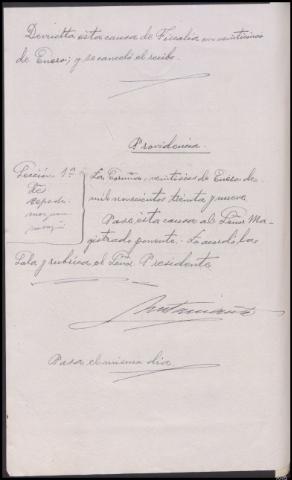 Devuelta esta causa de Fiscalía en veintiseis
de Enero; y se canceló el recibo.
Providencia.
Sección 1ª
La Coruña, veintiseis de Enero de
mil novecientos treinta y nueve
Pase esta causa al Señor Ma-
gistrado ponente. Lo acordó la
Sala y rubrica el Señor Presidente
Pasa el mismo dia.